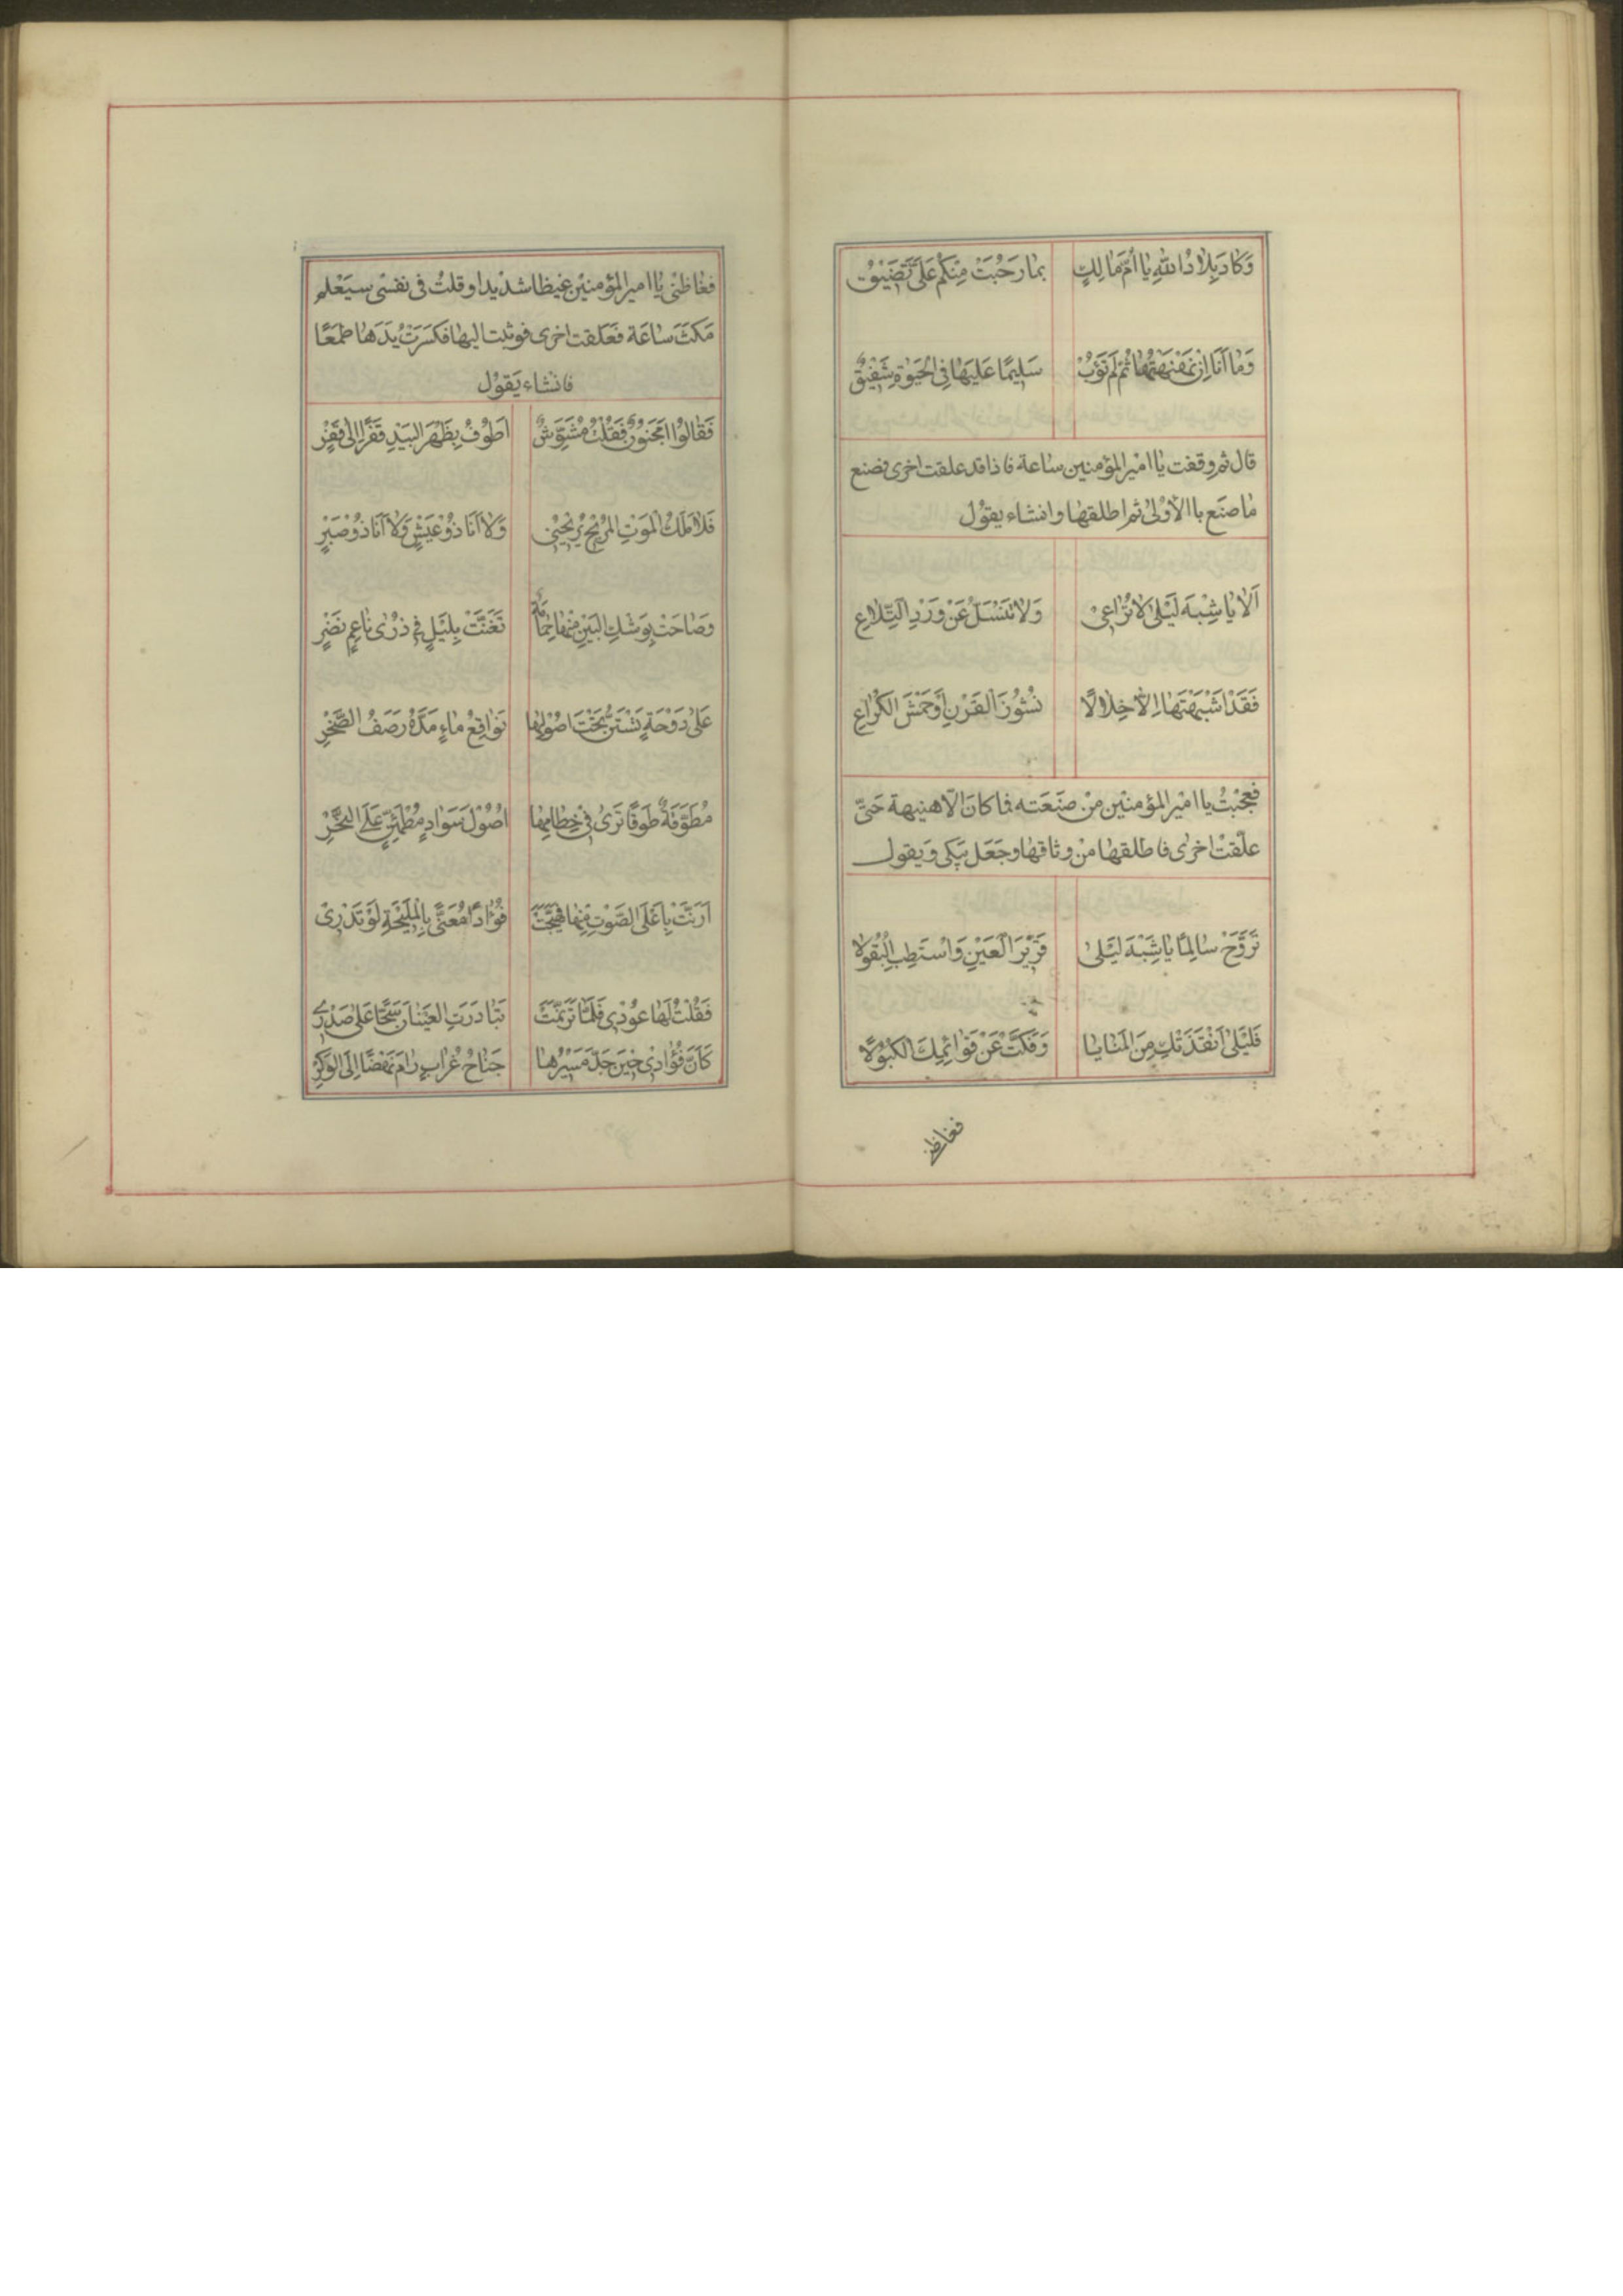 وَكَادَ بِلَادُ اللهِ يَا أُمَّ مَالِكٍ بِمَا رَحُبَتْ مِنْكُمْ عَلَيَّ تَضِيْقُ
وَمَا أَنَا إِنْ ثُمَّ لَمْ تَؤُبْ سَلِيمًا عَلَيْهَا فِي الْحَيٰوةِ شَفِيْقُ
قال ثم وقفت يا امير المؤمنين ساعة فاذا قد علقت اخرى فصنع
ما صنع باالاولى ثم اطلقها وانشاء يقول
اَلَا يَا شِبْهَ لَيْلٰى لَا تُرَاعِيْ وَلَا تَنْسَلَّ عَنْ وَرْدِ التِّلَاعِ
فَقَدْ اَشْبَهْتَهَا اِلَّا خِلَالًا نُشُوْزَ الْقَرْنِ اَوْ حَمْشَ الْكُرَاعِ
فعجبتُ يا امير المؤمنين من صنعته فما كان الّا هنيهة حَتّى
علّقت اخرى فاطلقها من وثاقها وجعل يبكى ويقول
تَرَوَّحْ سَالِمًا يَا شِبْهَ لَيْلٰى قَرِيْرَ الْعَيْنِ وَاسْتَطِبِ الْبُقُولَا
فَلَيْلٰى اَنْقَذَتْكِ مِنَ الْمَنَايَا وَفَكَّتْ عَنْ قَوَائِمِكَ الْكُبُوْلَا
فغاظنى
فغاظنى يا امير المؤمنين غيظا شديدا وقلت فى نفسى سيعلم
مكث ساعة فعلقت اخرى فوثبت اليها فكسرت يدها طمعًا
فانشاء يَقوْل
فَقَالُوْا اَمَجْنُوْنٌ فَقُلْتُ مُشَوَّشٌ اَطُوْفُ بِظَهْرِ الْبِيْدِ قَفْرًا اِلٰى قَفْرِ
فَلَا مَلَكُ الْمَوْتِ الْمُرِيْحُ يُرِيْحُنِيْ وَلَا اَنَا ذُوْ عَيْشٍ وَلَا اَنَا ذُوْ صَبْرِ
وَصَاحَتْ بِوَشْكِ الْبَيْنِ مِنْهَا حَمَامَةٌ تَغَنَّتْ بِلَيْلٍ فِى ذُرٰى نَاعِمٍ نَضْرِ
عَلٰى دَوْحَةٍ تَسْتَنُّ تَحْتَ اُصُوْلِهَا نَوَاقِعُ مَاءٍ مَدَّهُ رَصَفُ الصَّخْرِ
مُطَوَّقَةٌ طَوْقًا تَرٰى فِى خِطَامِهَا اُصُوْلَ سَوَادٍ مُطْمَئِنٍّ عَلَى النَّحْرِ
اَرَنَّتْ بِاَعْلَى الصَّوْتِ مِنْهَا فَهَيَّجَتْ فُؤَادًا مُعَنًّى بِالْمَلِيْحَةِ لَوْ تَدْرِىْ
فَقُلْتُ لَهَا عُوْدِى فَلَمَّا تَرَنَّمَتْ تَبَادَرَتِ الْعَيْنَانِ سَحًّا عَلٰى صَدْرِىْ
كَاَنَّ فُؤَادِىْ حِيْنَ جَدَّ مَسِيْرُهَا جَنَاحُ غُرَابٍ رَامَ نَهْضًا اِلَى الْوَكْرِ